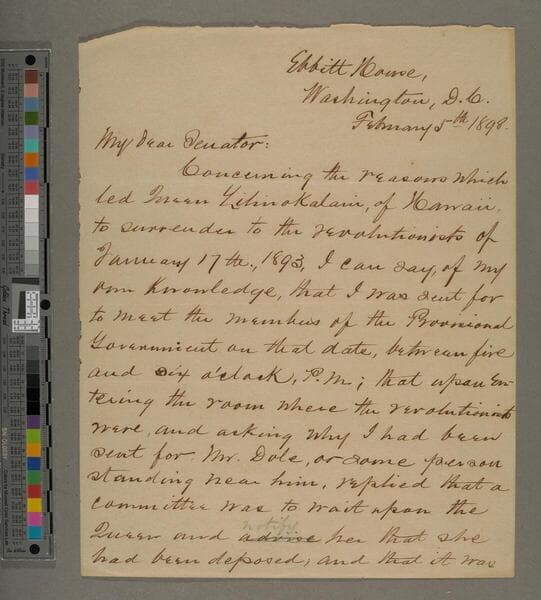 Ebbitt House,
Washington, D.C.
February 5th 1898.
My Dear Senator:
Concerning the reasons which
led Queen Liliuokalani, of Hawaii,
to surrender to the revolutionists of
January 17th, 1893, I can say, of my
own Knowledge, that I was sent for
to meet the members of the Provisional
Government on that date, between five
and six o'clock, P.M; that upon en-
tering the room where the revolutionists
were, and asking why I had been
sent for Mr. Dole, or some person
standing near him, replied that a
committee was to wait upon the
notify
Queen and advise her that she
had been deposed; and that it was